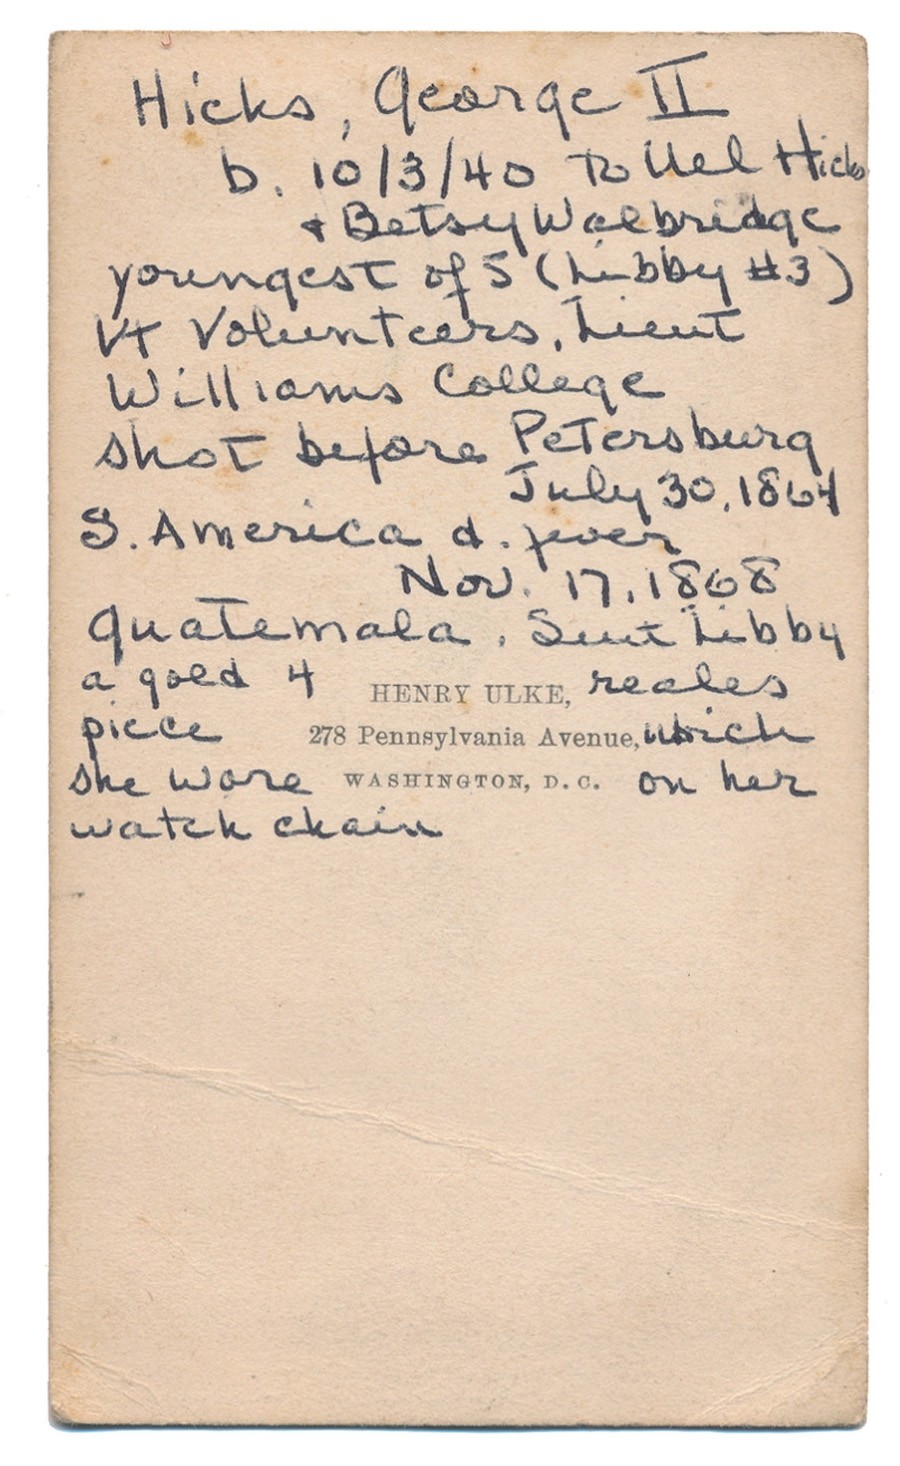 Hicks, George II
b. 10/3/40 to Uel Hicks
& Betsy Walbridge
youngest of 5 (Libby #3)
Vt Volunteers, Lieut
Williams College
shot before Petersburg
July 30, 1864
S. America d. fever
Nov. 17, 1868
Guatemala. Sent Libby
a gold 4 HENRY ULKE, reales
piece 278 Pennsylvania Avenue, which
she wore WASHINGTON, D.C. on her
watch chain